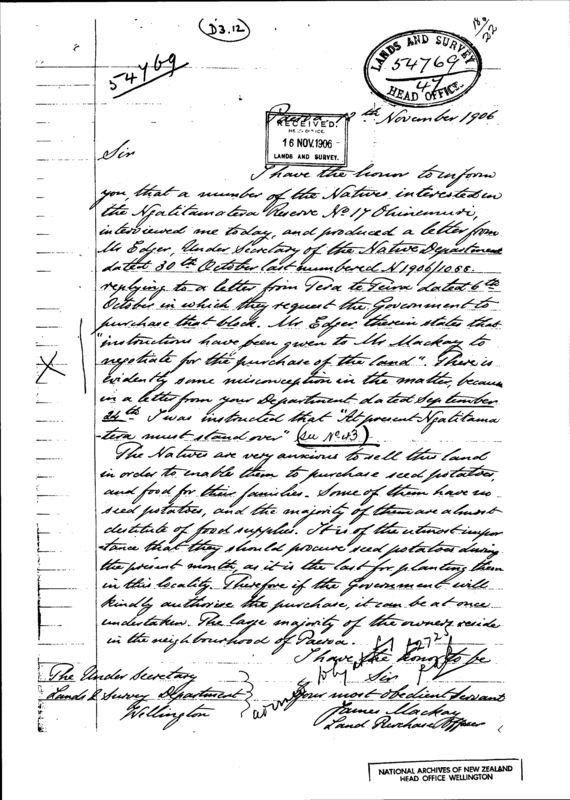 D3.12
54769
LANDS AND SURVEY
54769
47
HEAD OFFICE.
Paeroa 12th November 1906
RECEIVED.
HEAD OFFICE.
16 NOV. 1906
LANDS AND SURVEY.
Sir
I have the honor to inform
you, that a number of the Natives interested in
the Ngatitamatera Reserve No 17 Ohinemuri,
interviewed me today, and produced a letter from
Mr Edger, Under Secretary of the Native Department
dated 30th October last numbered N1906/1088.
replying to a letter from Tera te Teira dated 6th
October in which they request the Government to
purchase that block. Mr Edger therein states that
"instructions have been given to Mr Mackay to
negotiate for the purchase of the land". There is
evidently some misconception in the matter, because
in a letter from your Department dated September
24th I was instructed that "At present Ngatitama
-tera must stand over" (see No 43)
The Natives are very anxious to sell this land
in order to enable them to purchase seed potatoes,
and food for their families. Some of them have no
seed potatoes, and the majority of them are almost
destitute of food supplies. It is of the utmost impor
-tance that they should procure seed potatoes during
the present month, as it is the last for planting them
in this locality. Therefore if the Government will
kindly authorise the purchase, it can be at once
undertaken. The large majority of the owners reside
in the neighbourhood of Paeroa.
I have the honor to be
Sir
Your most obedient Servant
James Mackay
Land Purchase Officer
The Under Secretary
Lands & Survey Department
Wellington
NATIONAL ARCHIVES OF NEW ZEALAND
HEAD OFFICE WELLINGTON